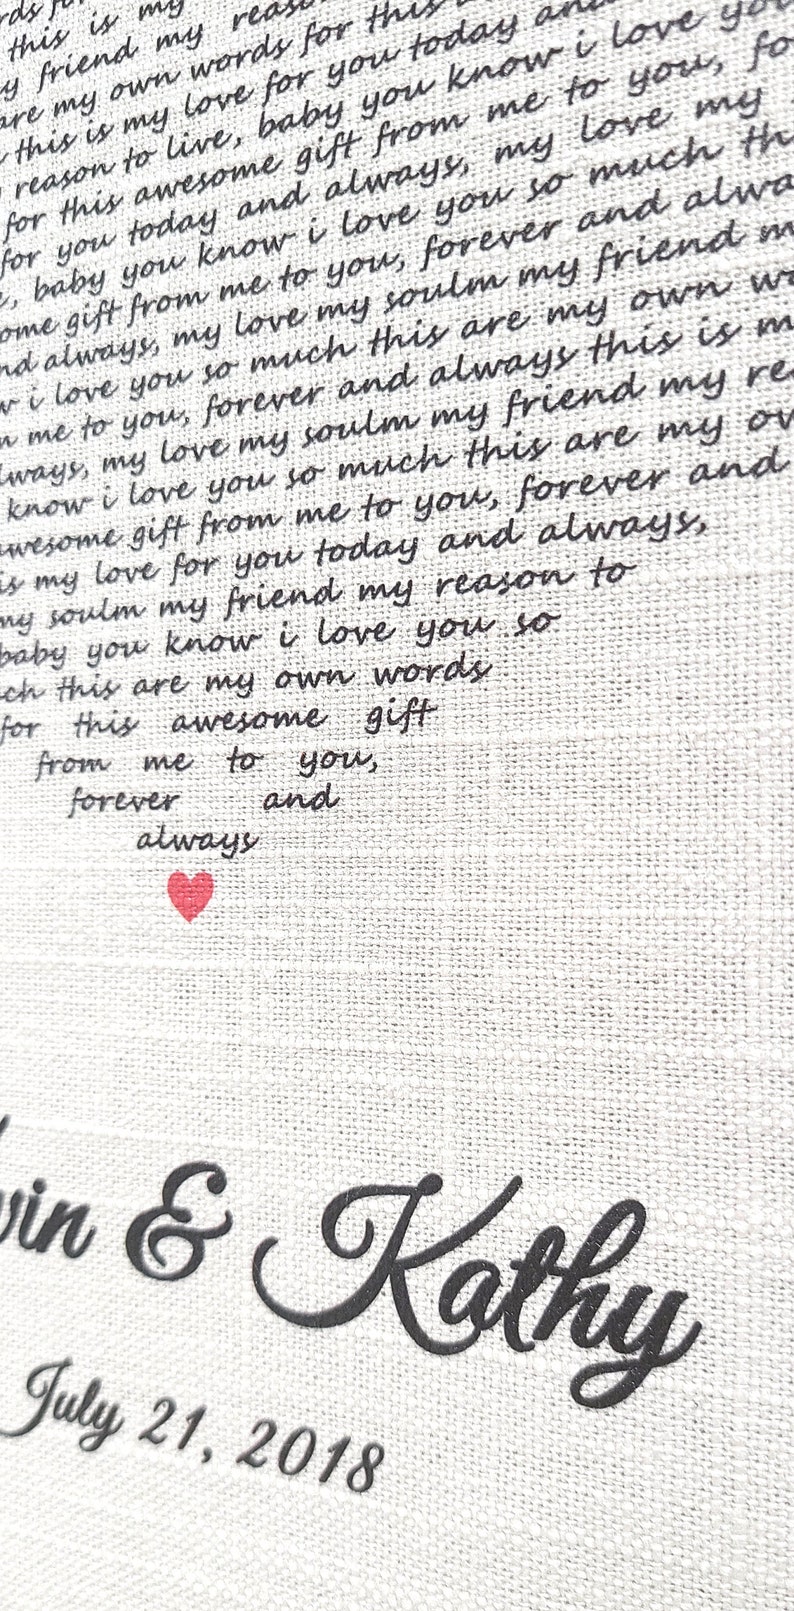 this is my
friend my reason
are my own words for this
this is my love for you today and
reason to live, baby you know i love you
for this awesome gift from me to you,
for you today and always, my love my
baby you know i love you so much
gift from me to you, forever and
always, my love my soulm my friend
i love you so much this are my own
me to you, forever and always this is
my love my soulm my friend my
know i love you so much this are my
awesome gift from me to you, forever and
my love for you today and always,
my soulm my friend my reason to
baby you know i love you so
this are my own words
for this awesome gift
from me to you,
forever and
always
& Kathy
July 21, 2018